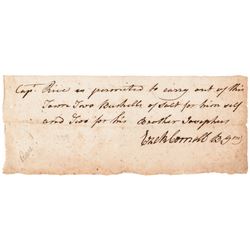 Capt. Rice is permitted to carry out of this
Town Two Bushells of Salt for him self
and Two for his Brother Josephus
Ezek Cornell B. Gen